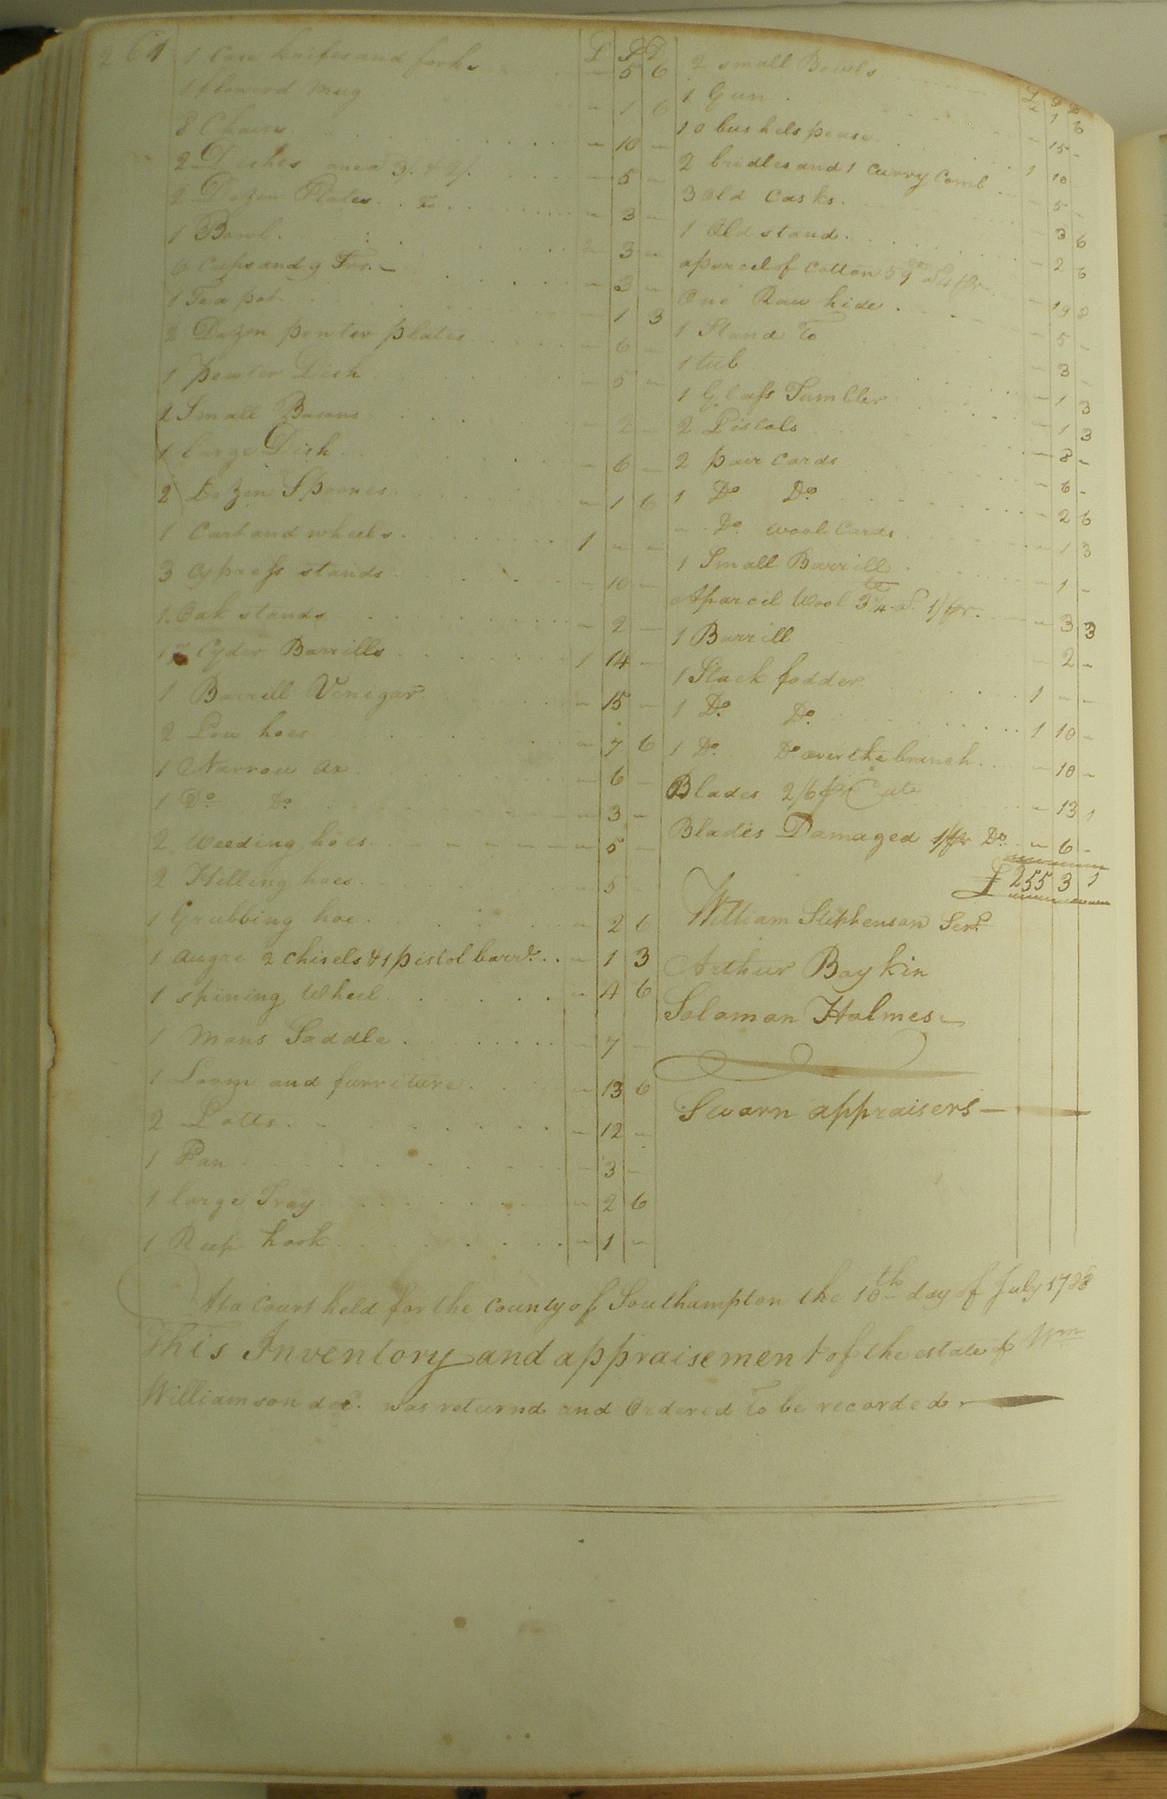 264
£ S D
1 Case knifes and forks - 5 6
1 flowerd Mug - 1 6
8 Chairs - 10 -
2 Dishes one a 3/. & 2/. - 5 -
2 Dozen Plates - 3 -
1 Bowl - 3 -
6 Cups and 9 - 3 -
1 Tea pot - 1 3
2 Dozen pewter plates - 6 -
1 pewter Dish - 5 -
2 Small Basons - 2 -
1 large Dish - 6 -
2 Dozen Spoones - 1 6
1 Cart and wheels 1 - -
3 Cypress stands - 10 -
1 Oak stands - 2 -
Cyder Barrills 1 14 -
1 Barrill Venigar - 15 -
2 hoes - 7 6
1 Narrow ax - 6 -
1 Do Do - 3 -
2 Weeding hoes - 5 -
2 Hilling hoes - 5 -
1 Grubbing hoe - 2 6
1 augre 2 Chisels & 1 pistol barrl. - 1 3
1 spining Wheel - 4 6
1 Mans Saddle - 7 -
1 Loom and furniture - 13 6
2 Potts - 12 -
1 Pan - 3 -
1 large Tray - 2 6
1 Reep hook - 1 -
£ S D
2 small Bowls - 1 6
1 Gun - 15 -
10 bushels pease 1 10
2 bridles and 1 Curry Comb - 5 -
3 Old Casks - 3 6
1 Old stand - 2 6
a parcel of Cotton - 19 8
One Raw hide - 5 -
1 Stand To - 3 -
1 tub - 1 3
1 Glass Tumbler - 1 3
2 Pistols - 8 -
2 pair Cards - 6 -
1 Do Do - 2 6
- Do wool Cards - 1 3
1 Small Barrill - 1 -
A parcel Wool 3¼ a 1/ pr. - 3 3
1 Barrill - 2 -
1 Stack fodder 1 - -
1 Do. Do. 1 10 -
1 Do Do over the branch - 10 -
Blades 2/6 pr Cut - 13 1
Blades Damaged 1/ pr Do. - 6 -
£ 255 3 1
William Stephenson Senr.
Arthur Boykin
Soloman Holmes
Sworn appraisers
At a Court held for the County of Southampton the 10th day of July 1788
This Inventory and appraisement of the estate of Wm
Williamson dec. was returnd and Ordered To be recorded